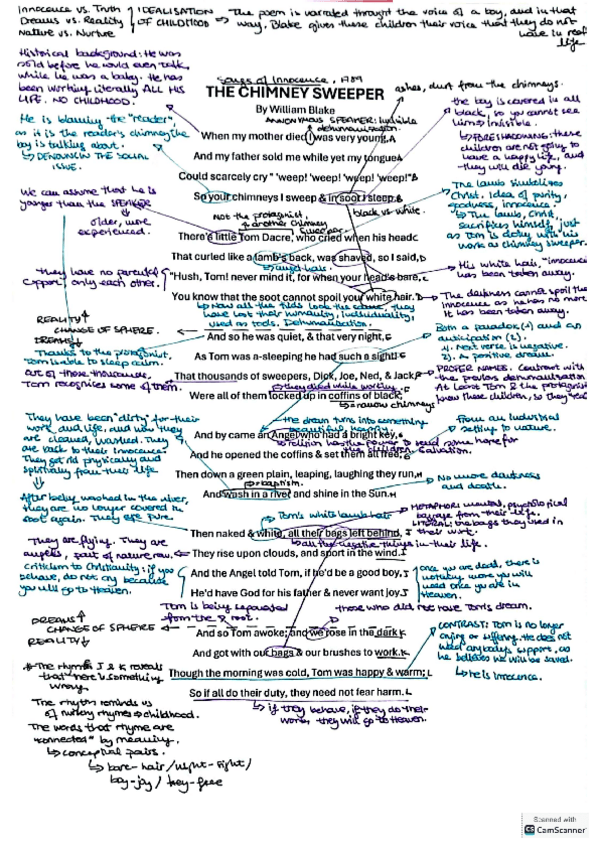 Innocence vs. Truth
Dreams vs. Reality
Nature vs. Nurture
IDEALISATION
OF CHILDHOOD
The poem is narrated throught the voice of a boy, and in that
way, Blake gives these children their voice that they do not
have in real
life
Historical background: He was
sold before he could even talk,
while he was a baby. He has
been working literally ALL HIS
LIFE. NO CHILDHOOD.
Songs of Innocence, 1789
THE CHIMNEY SWEEPER
By William Blake
ashes, dust from the chimneys.
ANONYMOUS SPEAKER: invisible
dehumanisation.
the boy is covered in all
black, so you cannot see
him → invisible.
FORESHADOWING: these
children are not going to
have a happy life, and
they will die young.
He is blaming the "reader",
as it is the reader's chimney the
boy is talking about.
DENOUNCING THE SOCIAL
ISSUE.
When my mother died I was very young, A
And my father sold me while yet my tongue A
Could scarcely cry " 'weep! 'weep! 'weep! 'weep!" B
So your chimneys I sweep & in soot I sleep. B
black vs. white.
We can assume that he is
younger than the SPEAKER
older, more
experienced.
Not the protagonist,
another chimney
sweeper.
The lamb symbolizes
Christ. Idea of purity,
goodness, innocence
The Lamb, Christ,
sacrifies himself, just
as Tom is doing with his
work as chimney sweeper.
There's little Tom Dacre, who cried when his head C
That curled like a lamb's back, was shaved, so I said, C
curly hair.
They have no parental
support, only each other.
"Hush, Tom! never mind it, for when your head's bare,
You know that the soot cannot spoil your white hair."
His white hair, "innocence"
has been taken away.
The darkness cannot spoil the
innocence as he has no more.
It has been taken away.
Now all the kids look the same, they
have lost their humanity, individuality,
used as tools. Dehumanisation.
REALITY
CHANGE OF SPHERE
DREAMS
And so he was quiet, & that very night,
As Tom was a-sleeping he had such a sight!
Both a paradox (1) and an
anticipation (2).
1. Next verse is negative.
2. A positive dream.
Thanks to the protagonist
Tom is able to sleep calm.
Out of those thousands,
Tom recognises some of them.
That thousands of sweepers, Dick, Joe, Ned, & Jack,
they died while working.
Were all of them locked up in coffins of black,
narrow chimneys
PROPER NAMES. Contrast with
the previous dehumanisation
At least Tom & the protagonist
know these children, so they
They have been "dirty" for their
work and life, and now they
are cleaned, washed. They
are back to their innocence.
They get rid physically and
spiritually from their life
the dream turns into something
beautiful, happy.
And by came an Angel who had a bright key,
religion has the power to send some hope for
the children. Salvation.
From an industrial
setting to nature.
And he opened the coffins & set them all free;
Then down a green plain, leaping, laughing they run, H
baptism.
And wash in a river and shine in the Sun. H
No more darkness
and death.
After being washed in the river,
they are no longer covered in
soot again. They are pure.
Tom's white lamb hair
Then naked & white, all their bags left behind, I
all the negative things in their life.
METAPHOR: mental, psychological
baggage from their life.
LITERAL: the bags they used in
their work.
They are flying. They are
angels, part of nature now.
They rise upon clouds, and sport in the wind. I
criticism to Christianity: if you
behave, do not cry because
you will go to Heaven.
And the Angel told Tom, if he'd be a good boy, J
He'd have God for his father & never want joy. J
once you are dead, there is
nothing more you will
need once you are in
Heaven.
Tom is being separated
from the root.
those who did not have Tom's dream.
DREAMS
CHANGE OF SPHERE
REALITY
And so Tom awoke; and we rose in the dark K
And got with our bags & our brushes to work. K
CONTRAST: Tom is no longer
crying or suffering. He does not
need anybody's support, as
he believes he will be saved.
he is innocence.
Though the morning was cold, Tom was happy & warm; L
So if all do their duty, they need not fear harm. L
if they behave, if they do their
work, they will go to Heaven.
The rhyme I & K reveals
that there is something
wrong.
The rhythm reminds us
of nursery rhymes → childhood.
The words that rhyme are
"connected" by meaning.
conceptual pairs.
bare-hair/night-sight/
boy-joy / key-free
Scanned with
CS CamScanner